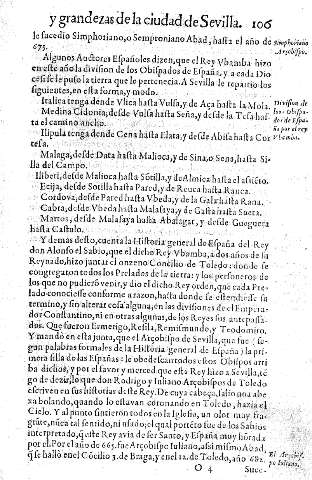 y grandezas de la ciudad de Sevilla. 106
le sucedio Simphoriano, o Semproniano Abad, hasta el año de
675.
Simphoriano
Arçobispo.
Algunos Auctores Españoles dizen, que el Rey Vbamba hizo
en este año la division de los Obispados de España, y a cada Dio
cesi se le puso la tierra que le pertenecia. A Sevilla le repartio los
siguientes, en esta forma, y modo.
Division de
los Obispa-
dos de Espa
ña por el rey
Vbamba.
Italica tenga dende Vlica hasta Vulsa, y de Aça hasta la Mola.
Medina Cidonia, desde Vulsa hasta Seña, y de la Tesa has
ta el camino ancho.
Ilipula tenga dende Cena hasta Elata, y desde Abisa hasta Cor
tesa.
Malaga, desde Data hasta Malioca, y de Sina, o Sena, hasta Si-
lla del Campo.
Iliberi, desde Malioca hasta Sotilla, y de Almica hasta el
Ecija, desde Sotilla hasta Pared, y de Reuca hasta Ranca.
Cordova, desde Pared hasta Vbeda, y de la Gala hasta Rana.
Cabra, desde Vbeda hasta Malasaya, y de Gasta hasta Sueta.
Martos, desde Malasaya hasta Abalagar, y desde Gueguera
hasta Castulo.
Y demas desto, cuenta la Historia general de España del Rey
don Alonso el Sabio, que el dicho Rey Vbamba, a dos años de su
Reynado, hizo juntar el onzeno Concilio de Toledo: donde se
congregaron todos los Prelados de la tierra: y los personeros de
los que no pudierõ venir, y dio el dicho Rey orden, que cada Pre
lado conociesse conforme a razon, hasta donde se estendiesse su
termino, y sin alterar cosa alguna, en las divisiones de el Empera-
dor Constantino, ni en otras algunas, de los Reyes sus antepassa-
dos. Que fueron Ermerigo, Resila, Remismundo, y Teodomiro.
Y mandò en esta junta, que al Arçobispo de Sevilla, que fue (se-
gun palabras formales de la Historia general de España) la pri-
mera silla de las Españas: le obedescan todos estos Obispos arri
ba dichos, y por el favor y merced que este Rey hizo a Sevilla, tẽ
go de dezir, lo que don Rodrigo y Iuliano Arçobispos de Toledo
escriven en sus historias deste Rey. De cuya cabeça, salio una abe
xa bolando, quando lo estavan coronando en Toledo, hazia el
Cielo. Y al punto sintieron todos en la Iglesia, un olor muy fra-
gãte, nũca tal sentido, ni usado; el qual portẽto fue de los Sabios
interpretado, q̃ este Rey avia de ser Santo, y España muy hõrada
por el. Por el año de 665. fue Arçobispo Iuliano, assi mismo Abad,
q̃ se hallò en el Cõcilio 3. de Braga, y en el 12. de Toledo, año 682.
El Arçobis-
po Iuliano.
O 4 Suce-